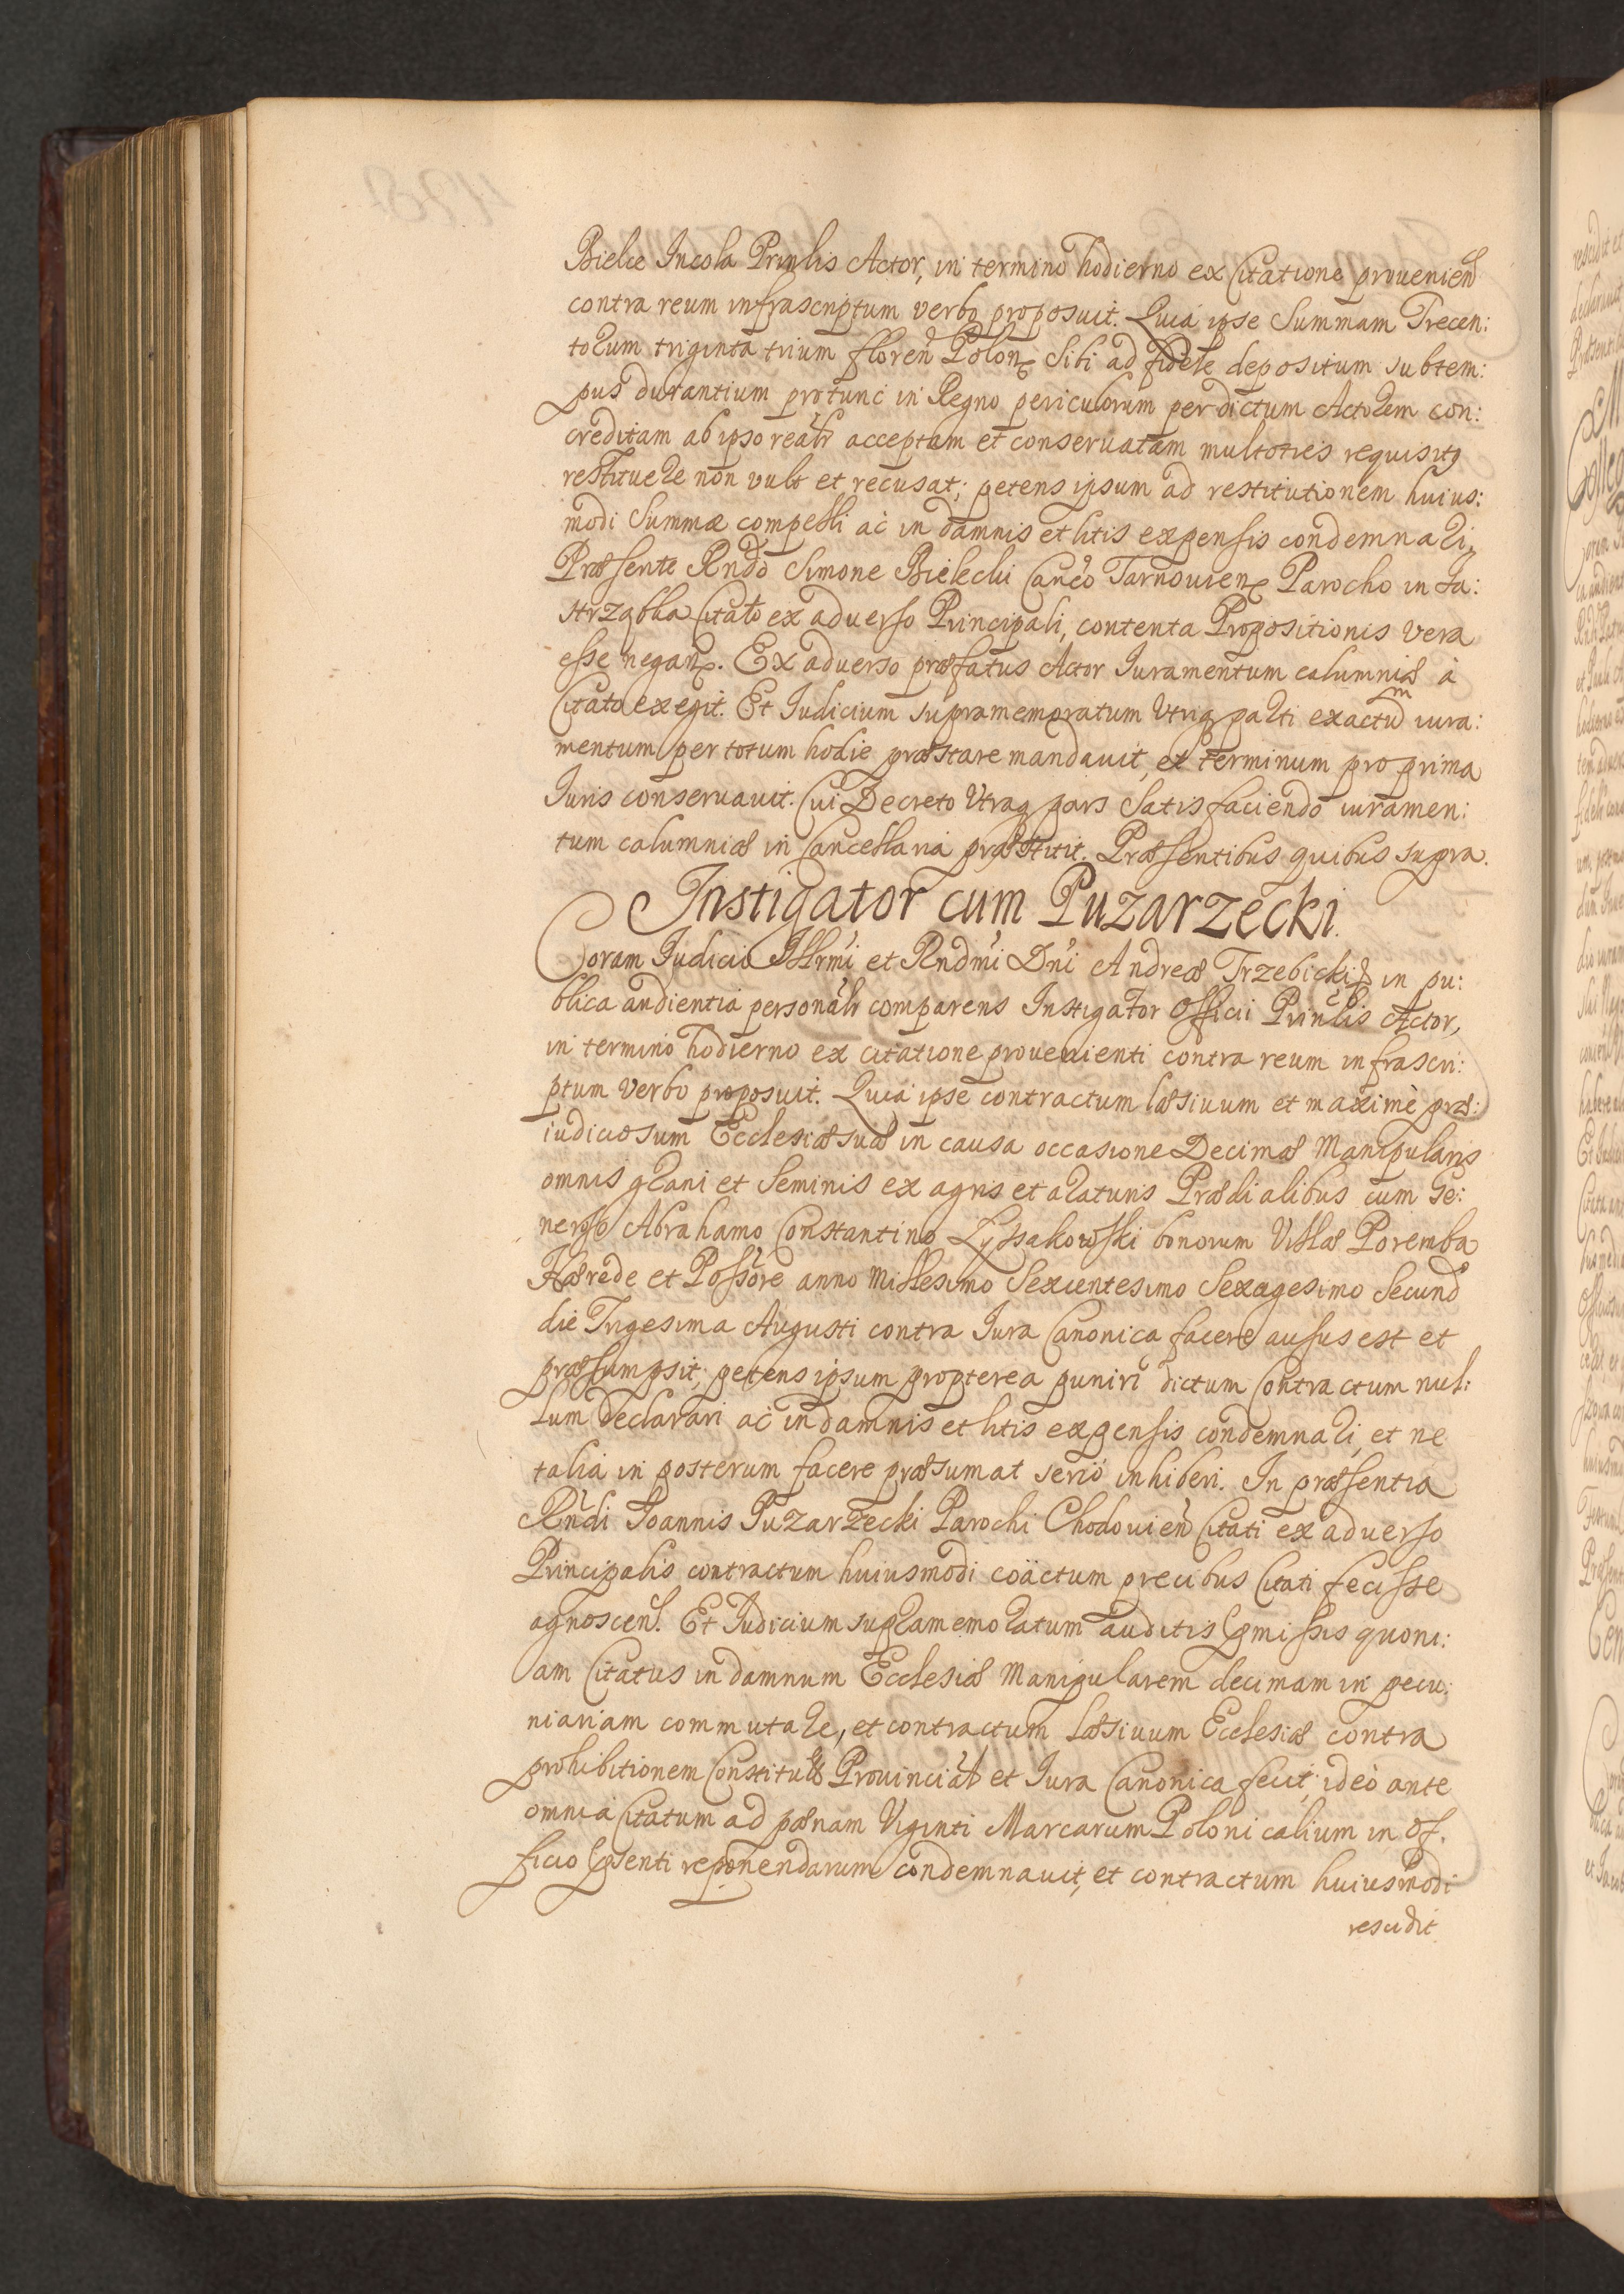 Bielce Incola Prinlis Actor, in termino hodierno ex Citatione prouenien
contra reum infrascriptum verbo proposuit. Quia ipse Summam Trecen:
torum triginta trium floren Polon Sibi ad fidele depositum sub tem:
pus durantium protunc in Regno periculorum per dictum Actorem con:
creditam ab ipso realr acceptam et conseruatam multoties requisitus
restituere non vult et recusat; petens ipsum ad restitutionem huius:
modi Summæ compelli ac in damnis et litis expensis condemnari,
Præsente Rndo Simone Bielecki Canco Tarnouien Parocho in Ja:
strząbka Citato ex aduerso Principali, contenta Propositionis vera
esse negan. Ex aduerso præfatus Actor Iuramentum calumniæ à
Citato exegit. Et Iudicium supramemoratum Vtrique parti exactum iura:
mentum per totum hodie præstare mandauit, et terminum pro prima
Iuris conseruauit. Cui Decreto Vtraque pars Satisfaciendo iuramen:
tum calumniæ in Cancellaria præstitit. Præsentibus quibus supra.
Instigator cum Puzarzecki.
Coram Iudicio Illrmi et Rndmi Dni Andreæ Trzebicki in pu:
blica audientia personalr comparens Instigator Officii Prinlis Actor,
in termino hodierno ex citatione prouenienti contra reum infrascri:
ptum verbo proposuit. Quia ipse contractum læsiuum et maximè præ:
iudiciosum Ecclesiæ suæ in causa occasione Decimæ Manipularis
omnis grani et Seminis ex agris et araturis Prædialibus cum Ge:
neroso Abrahamo Constantino Lyssakowski bonorum Villæ Poremba
Hærede et Possore anno Millesimo Sexcentesimo Sexagesimo Secund
die Trigesima Augusti contra Iura Canonica facere ausus est et
præsumpsit; petens ipsum propterea puniri dictum Contractum nul:
lum declarari ac in damnis et litis expensis condemnari, et ne
talia in posterum facere præsumat serio inhiberi. In præsentia
Rndi Ioannis Puzarzecki Parochi Chodouien Citati ex aduerso
Principalis contractum huiusmodi coäctum precibus Citati fecisse
agnoscen. Et Iudicium supramemoratum auditis pmissis quoni:
am Citatus in damnum Ecclesiæ Manipularem decimam in pecu:
niariam commutare, et contractum læsiuum Ecclesiæ contra
prohibitionem Constitutis Prouincial et Iura Canonica fecit, ideò ante
omnia Citatum ad pænam Viginti Marcarum Polonicalium in Of.
ficio psenti reponendarum condemnauit, et contractum huiusmodi
rescidit